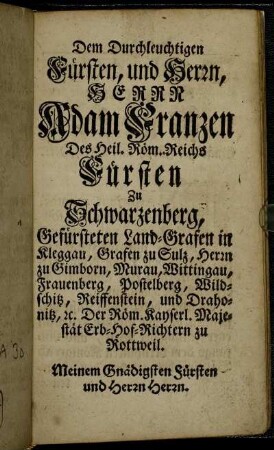 Dem Durchleuchtigen
Fürsten, und Herrn,
HERRN
Adam Franzen
Des Heil. Röm. Reichs
Fürsten
Zu
Schwarzenberg,
Gefürsteten Land-Grafen in
Kleggau, Grafen zu Sulz, Herrn
zu Gimborn, Murau, Wittingau,
Frauenberg, Postelberg, Wild-
schitz, Reiffenstein, und Draho-
nitz, ꝛc. Der Röm. Kayserl. Maje-
stät Erb-Hof-Richtern zu
Rottweil.
Meinem Gnädigsten Fürsten
und Herrn Herrn.